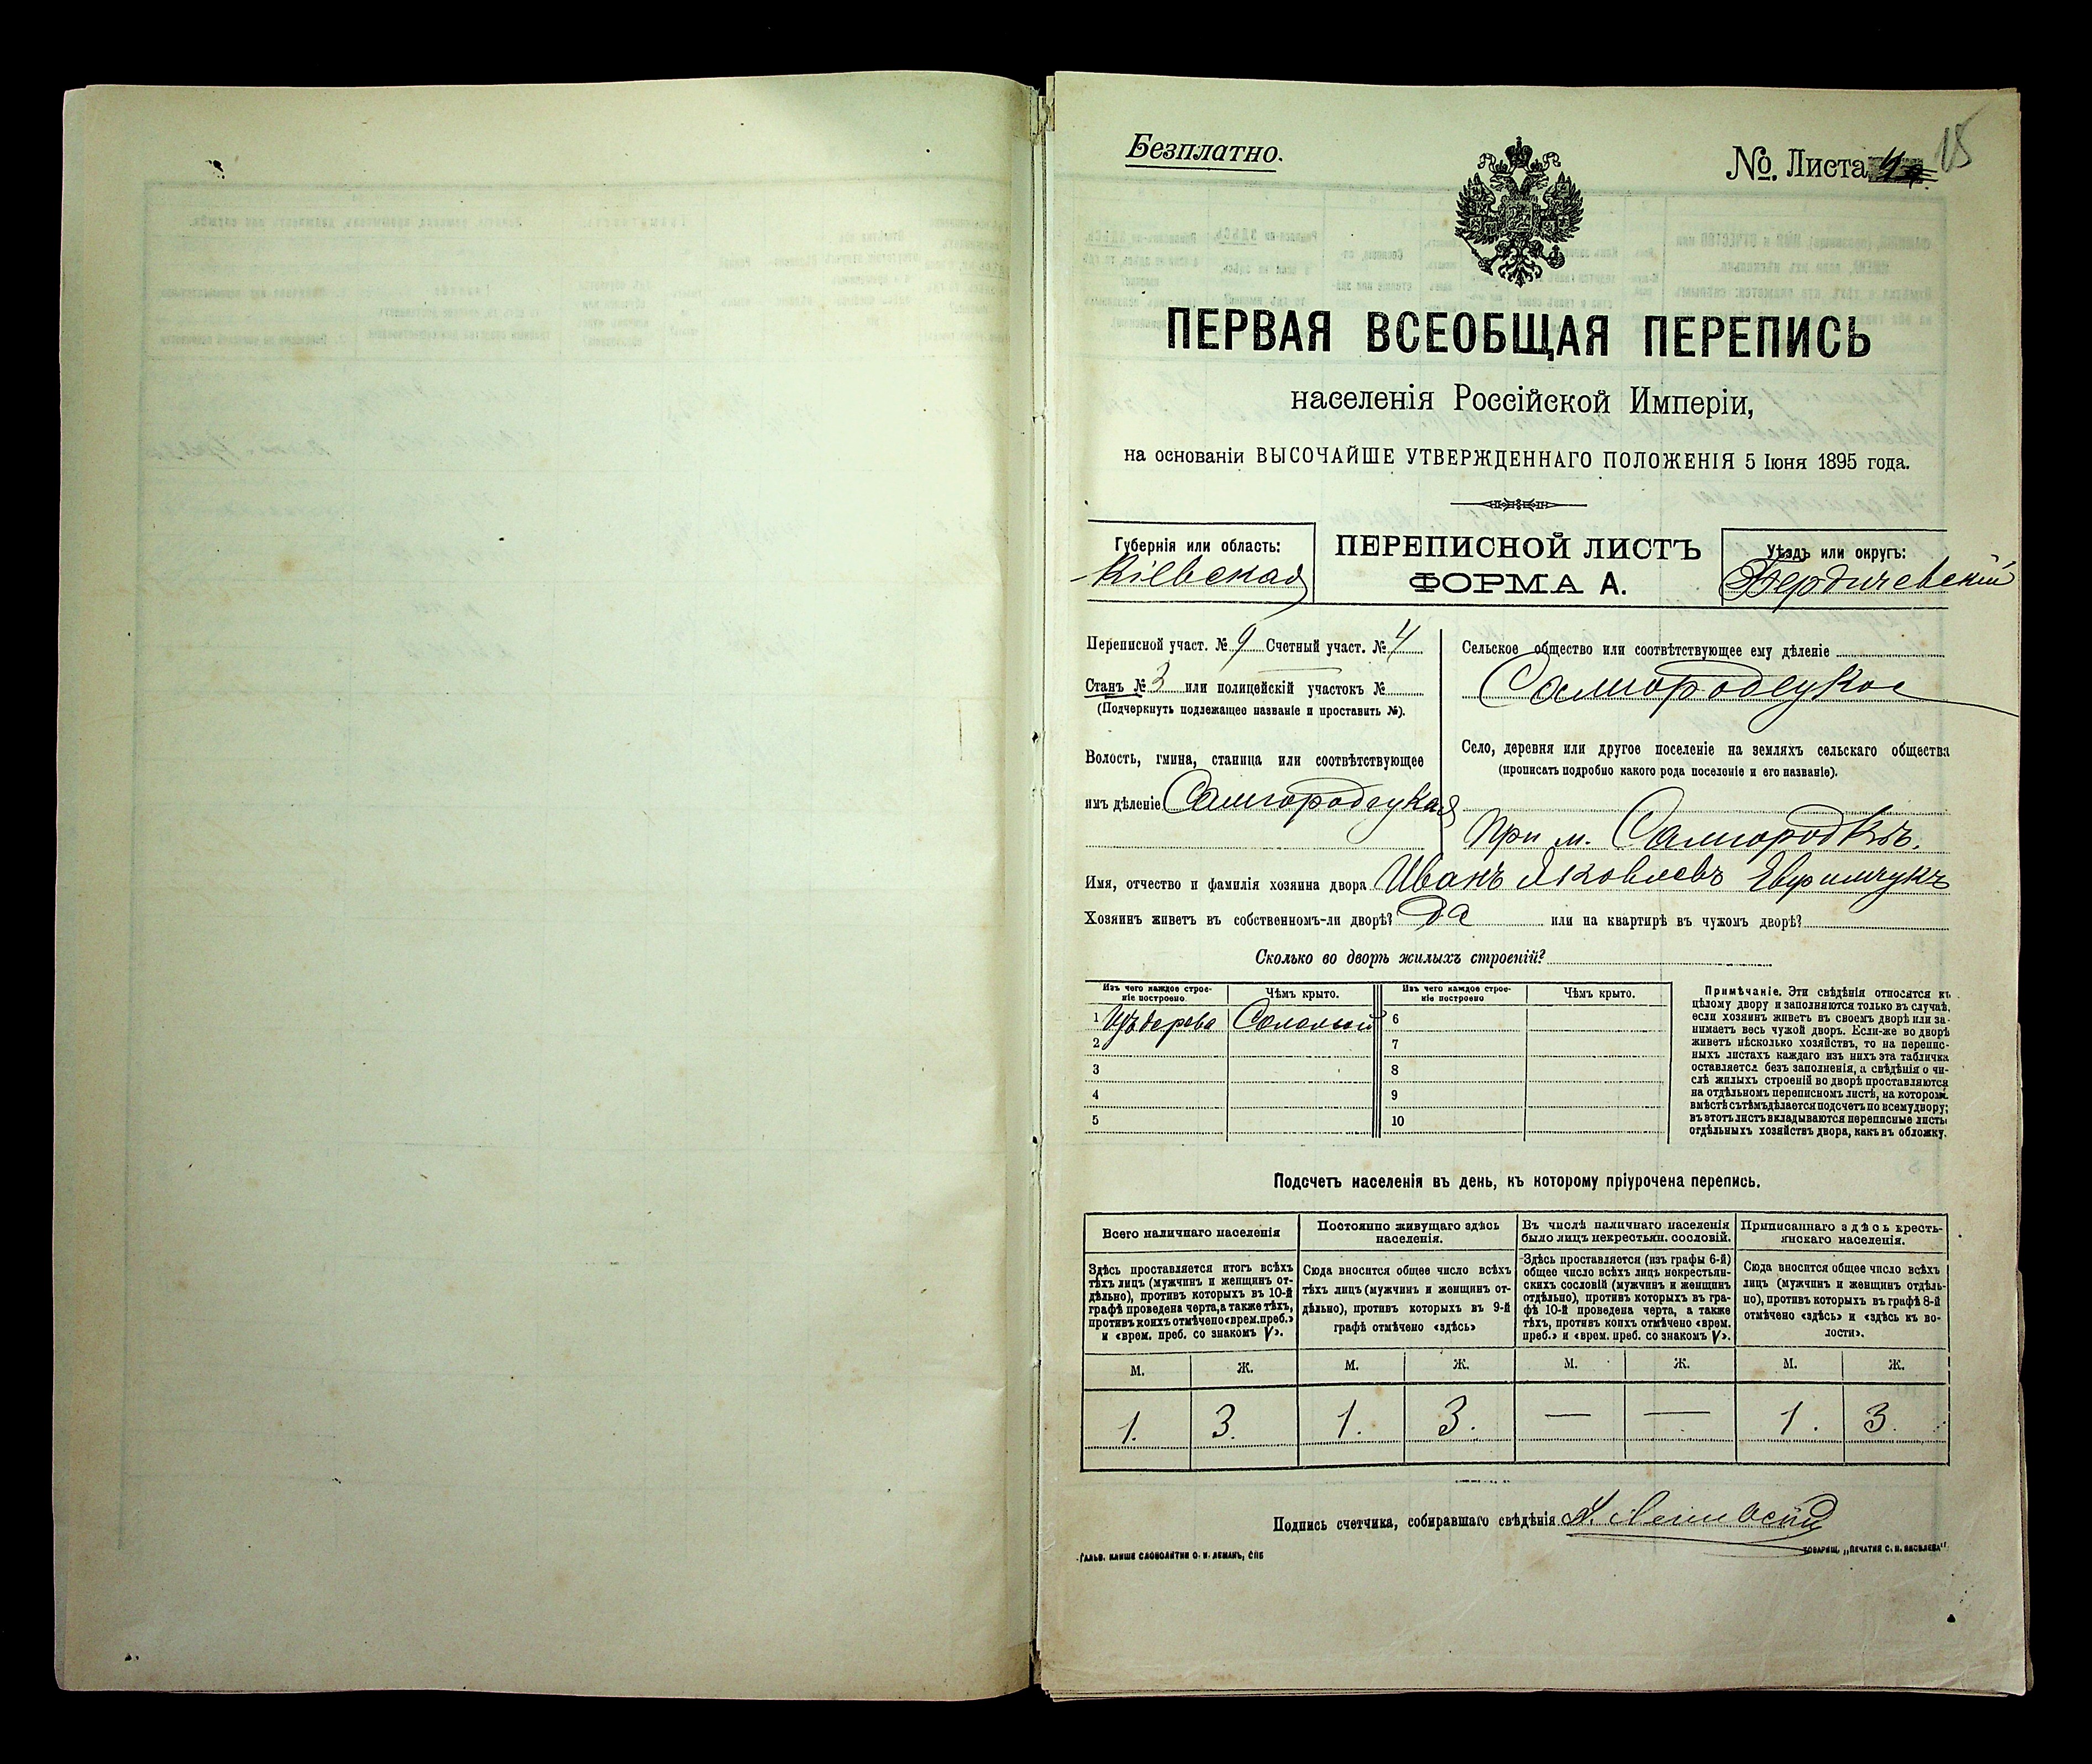 Безплатно.
№. Листа 4
15
ПЕРВАЯ ВСЕОБЩАЯ ПЕРЕПИСЬ
населенія Россійской Имперіи,
на основаніи ВЫСОЧАЙШЕ УТВЕРЖДЕННАГО ПОЛОЖЕНІЯ 5 Іюня 1895 года.
Губернія или область:
Кіевская
ПЕРЕПИСНОЙ ЛИСТЪ
ФОРМА А.
Уѣздъ или округъ:
Бердичевскій
Переписной участ. № 9 Счетный участ. № 4
Станъ № 3 или полицейскій участокъ №
(Подчеркнуть подлежащее названіе и проставить №).
Волость, гмина, станица или соотвѣтствующее
имъ дѣленіе Самгородецкая
Сельское общество или соотвѣтствующее ему дѣленіе
Самгородецкое
Село, деревня или другое поселеніе на земляхъ сельскаго общества
(прописать подробно какого рода поселеніе и его названіе).
При м. Самгородкѣ.
Имя, отчество и фамилія хозяина двора Иванъ Яковлевъ Евфимчукъ
Хозяинъ живетъ въ собственномъ-ли дворѣ? да или на квартирѣ въ чужомъ дворѣ?
Сколько во дворѣ жилыхъ строеній?
Изъ чего каждое строе-
ніе построено
Чѣмъ крыто.
Изъ чего каждое строе-
ніе построено
Чѣмъ крыто.
1 Изъ дерева Соломой 6
2 7
3 8
4 9
5 10
Примѣчаніе. Эти свѣдѣнія относятся къ
цѣлому двору и заполняются только въ случаѣ,
если хозяинъ живетъ въ своемъ дворѣ или за-
нимаетъ весь чужой дворъ. Если-же во дворѣ
живетъ нѣсколько хозяйствъ, то на перепис-
ныхъ листахъ каждаго изъ нихъ эта табличка
оставляется безъ заполненія, а свѣдѣнія о чи-
слѣ жилыхъ строеній во дворѣ проставляются
на отдѣльномъ переписномъ листѣ, на которомъ
вмѣстѣ съ тѣмъ дѣлается подсчетъ по всему двору;
въ этотъ листъ вкладываются переписные листы
отдѣльныхъ хозяйствъ двора, какъ въ обложку.
Подсчетъ населенія въ день, къ которому пріурочена перепись.
Всего наличнаго населенія
Постоянно живущаго здѣсь
населенія.
Въ числѣ наличнаго населенія
было лицъ некрестьян. сословій.
Приписаннаго здѣсь кресть-
янскаго населенія.
Здѣсь проставляется итогъ всѣхъ
тѣхъ лицъ (мужчинъ и женщинъ от-
дѣльно), противъ которыхъ въ 10-й
графѣ проведена черта, а также тѣхъ,
противъ коихъ отмѣчено «врем. преб.»
и «врем. преб. со знакомъ V».
Сюда вносится общее число всѣхъ
тѣхъ лицъ (мужчинъ и женщинъ от-
дѣльно), противъ которыхъ въ 9-й
графѣ отмѣчено «здѣсь»
Здѣсь проставляется (изъ графы 6-й)
общее число всѣхъ лицъ некрестьян-
скихъ сословій (мужчинъ и женщинъ
отдѣльно), противъ которыхъ въ гра-
фѣ 10-й проведена черта, а также
тѣхъ, противъ коихъ отмѣчено «врем.
преб.» и «врем. преб. со знакомъ V».
Сюда вносится общее число всѣхъ
лицъ (мужчинъ и женщинъ отдѣль-
но), противъ которыхъ въ графѣ 8-й
отмѣчено «здѣсь» и «здѣсь къ во-
лости».
М. Ж. М. Ж. М. Ж. М. Ж.
1. 3. 1. 3. — — 1. 3.
Подпись счетчика, собиравшаго свѣдѣнія
ГАЛЬВ. КЛИШЕ СЛОВОЛИТНИ О. И. ЛЕМАНЪ, СПБ
ТОВАРИЩ. „ПЕЧАТНЯ С. П. ЯКОВЛЕВА“